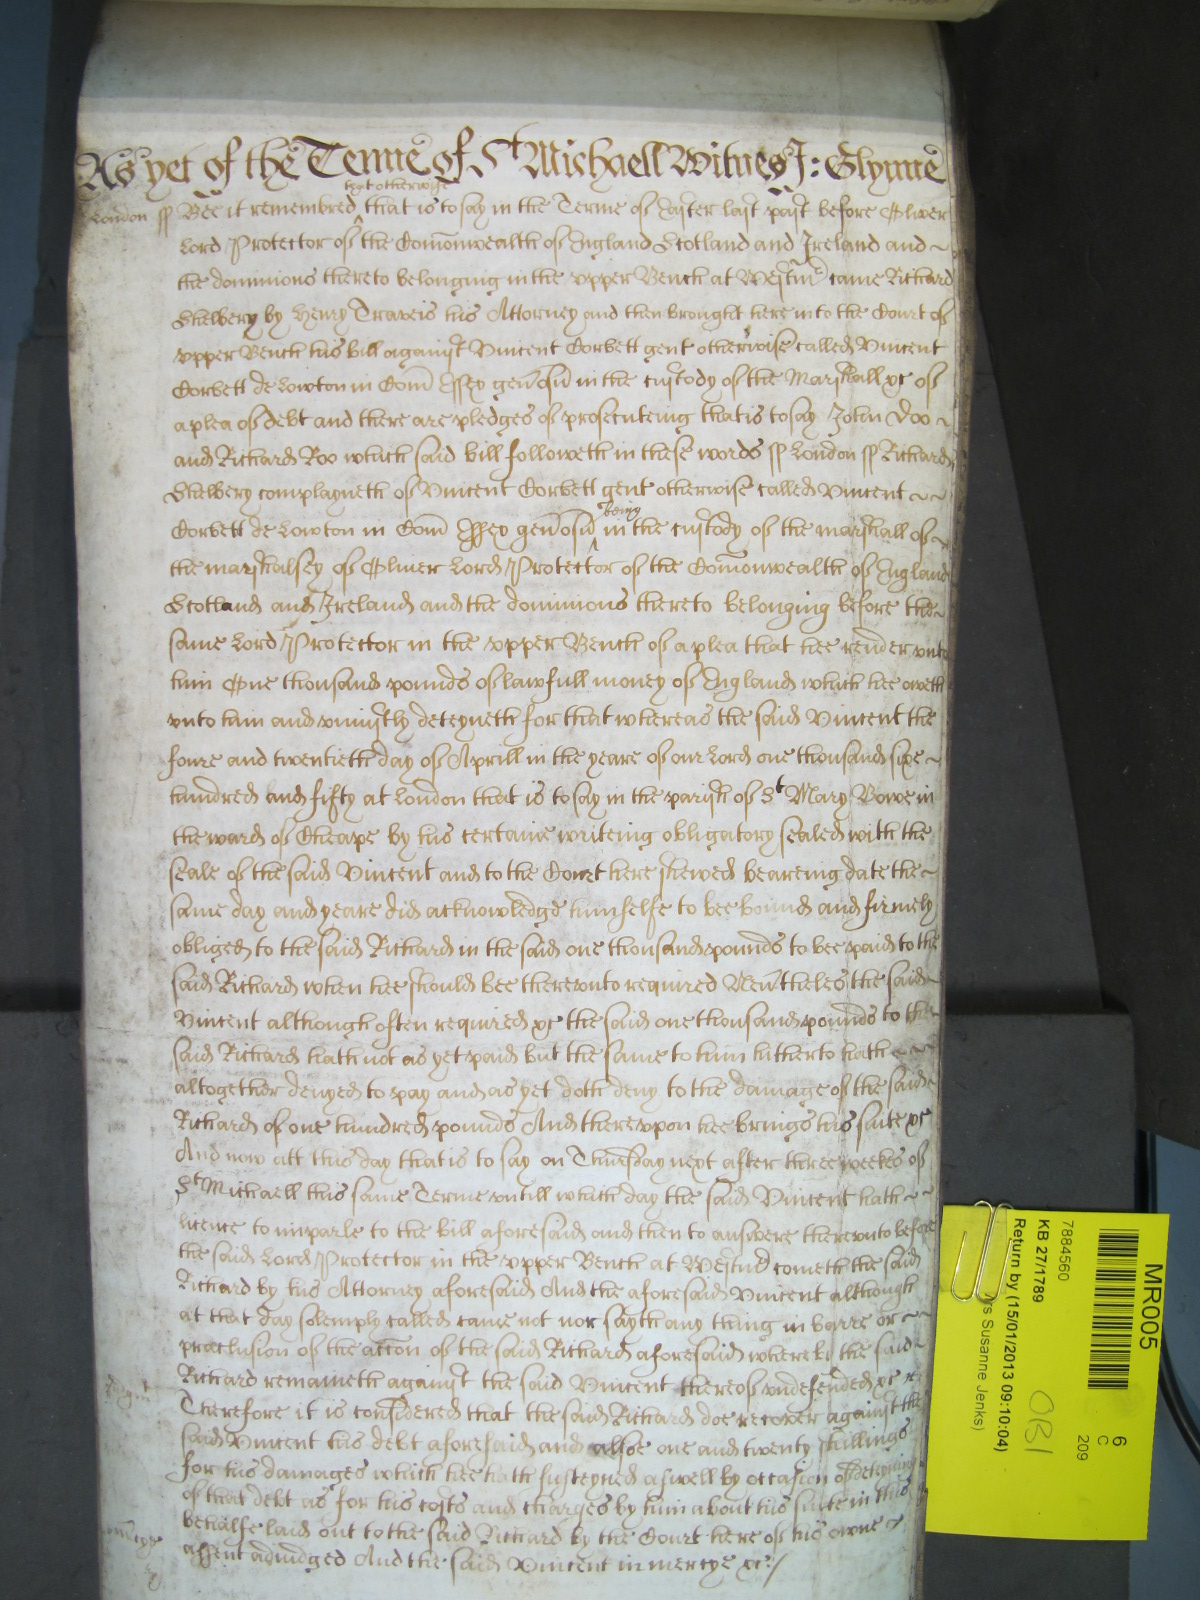 As yet of the Terme of St Michaell Witnes J: Glynne
London ss Bee it remembred that is to say in the Terme of Easter last past before Oliver
Lord Protector of the Comonwealth of England Scotland and Ireland and
the dominions thereto belonging in the upper Bench at Westmr came Richard
Shelbery by Henry Traveis his Attorney and then brought here into the Court of
upper Bench his bill against Vincent Corbett gent otherwise called Vincent
Corbett de Lowton in Com Essex genosu in the custody of the Marshall &c of
a plea of debt and there are pledges of prosecuteing that is to say John Doo
and Richard Roo which said bill followeth in these words ss London ss Richard
Shelbery complayneth of Vincent Corbett gent otherwise called Vincent
Corbett de Lowton in Com Essex genosu being in the custody of the marshall of
the marshalsey of Oliver Lord Protector of the Comonwealth of England
Scotland and Ireland and the dominions thereto belonging before the
same Lord Protector in the upper Bench of a plea that hee render unto
him One thousand pounds of lawfull money of England which hee oweth
unto him and uniustly deteyneth for that whereas the said Vincent the
foure and twentieth day of Aprill in the yeare of our Lord one thousand sixe
hundred and fifty at London that is to say in the parish of St Mary Bowe in
the ward of Cheape by his certaine writeing obligatory sealed with the
seale of the said Vincent and to the Court here shewed beareing date the
same day and yeare did acknowledge himselfe to bee bound and firmely
obliged to the said Richard in the said one thousand pounds to bee paid to the
said Richard when hee should bee thereunto required Neutheles the said
Vincent although often required &c the said one thousand pounds to the
said Richard hath not as yet paid but the same to him hitherto hath
altogether denyed to pay and as yet doth deny to the damage of the said
Richard of one hundred pounds And thereupon hee brings his suite &c
And now att this day that is to say on Thursday next after three weekes of
St Michaell this same Terme untill which day the said Vincent hath
licence to imparle to the bill aforesaid and then to answere thereunto before
the said Lord Protector in the upper Bench at Westmr cometh the said
Richard by his Attorney aforesaid And the aforesaid Vincent although
at that day solemply called came not nor sayth any thing in barre or
preclusion of the accon of the said Richard aforesaid whereby the said
Richard remaineth against the said Vincent thereof undefended &c
Therefore it is considered that the said Richard doe recover against the
said Vincent his debt aforesaid and alsoe one and twenty shillings
for his damages which hee hath susteyned aswell by occasion of deteyning
of that debt as for his costs and charges by him about his suite in this
behalfe laid out to the said Richard by the Court here of his owne
assent adiudged And the said Vincent in mercye &c
MR005
6
C
209
7884560
KB 27/1789
Return by (15/01/2013 09:10:04)
Susanne Jenks)